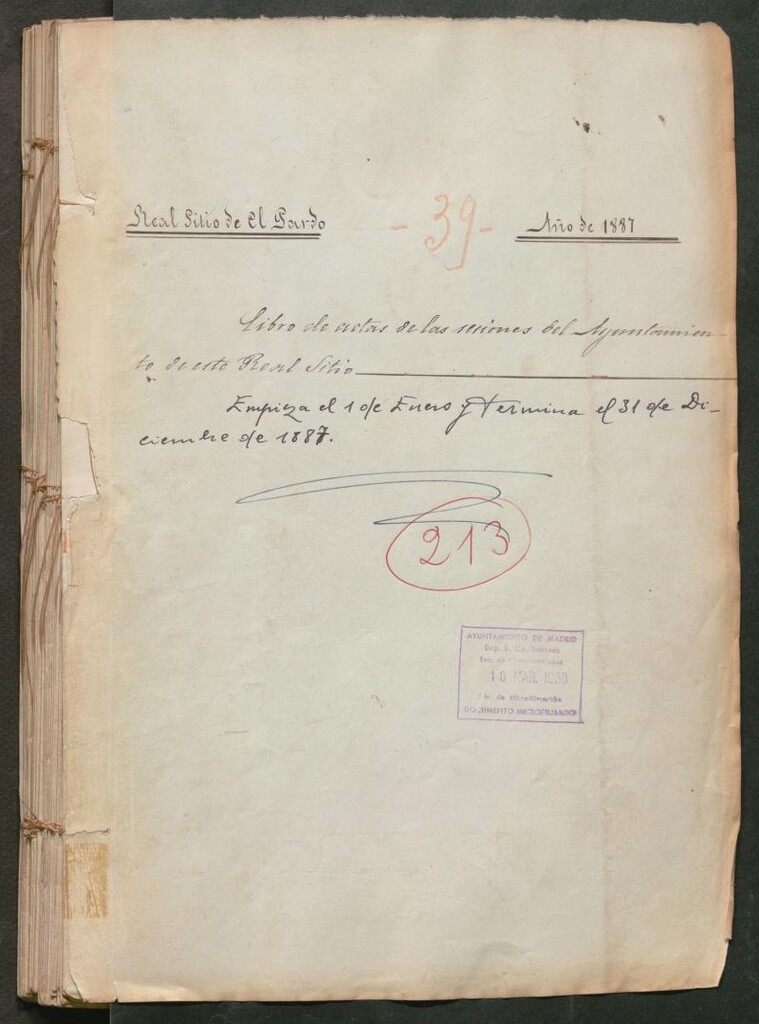 Real Sitio de El Pardo
- 39 -
Año de 1887
Libro de actas de las sesiones del Ayuntamien-
to de este Real Sitio
Empieza el 1 de Enero y termina el 31 de Di-
ciembre de 1887.
213
AYUNTAMIENTO DE MADRID
Dep. S.
10 MAR.
de Microfilmación
DOCUMENTO MICROFILMADO